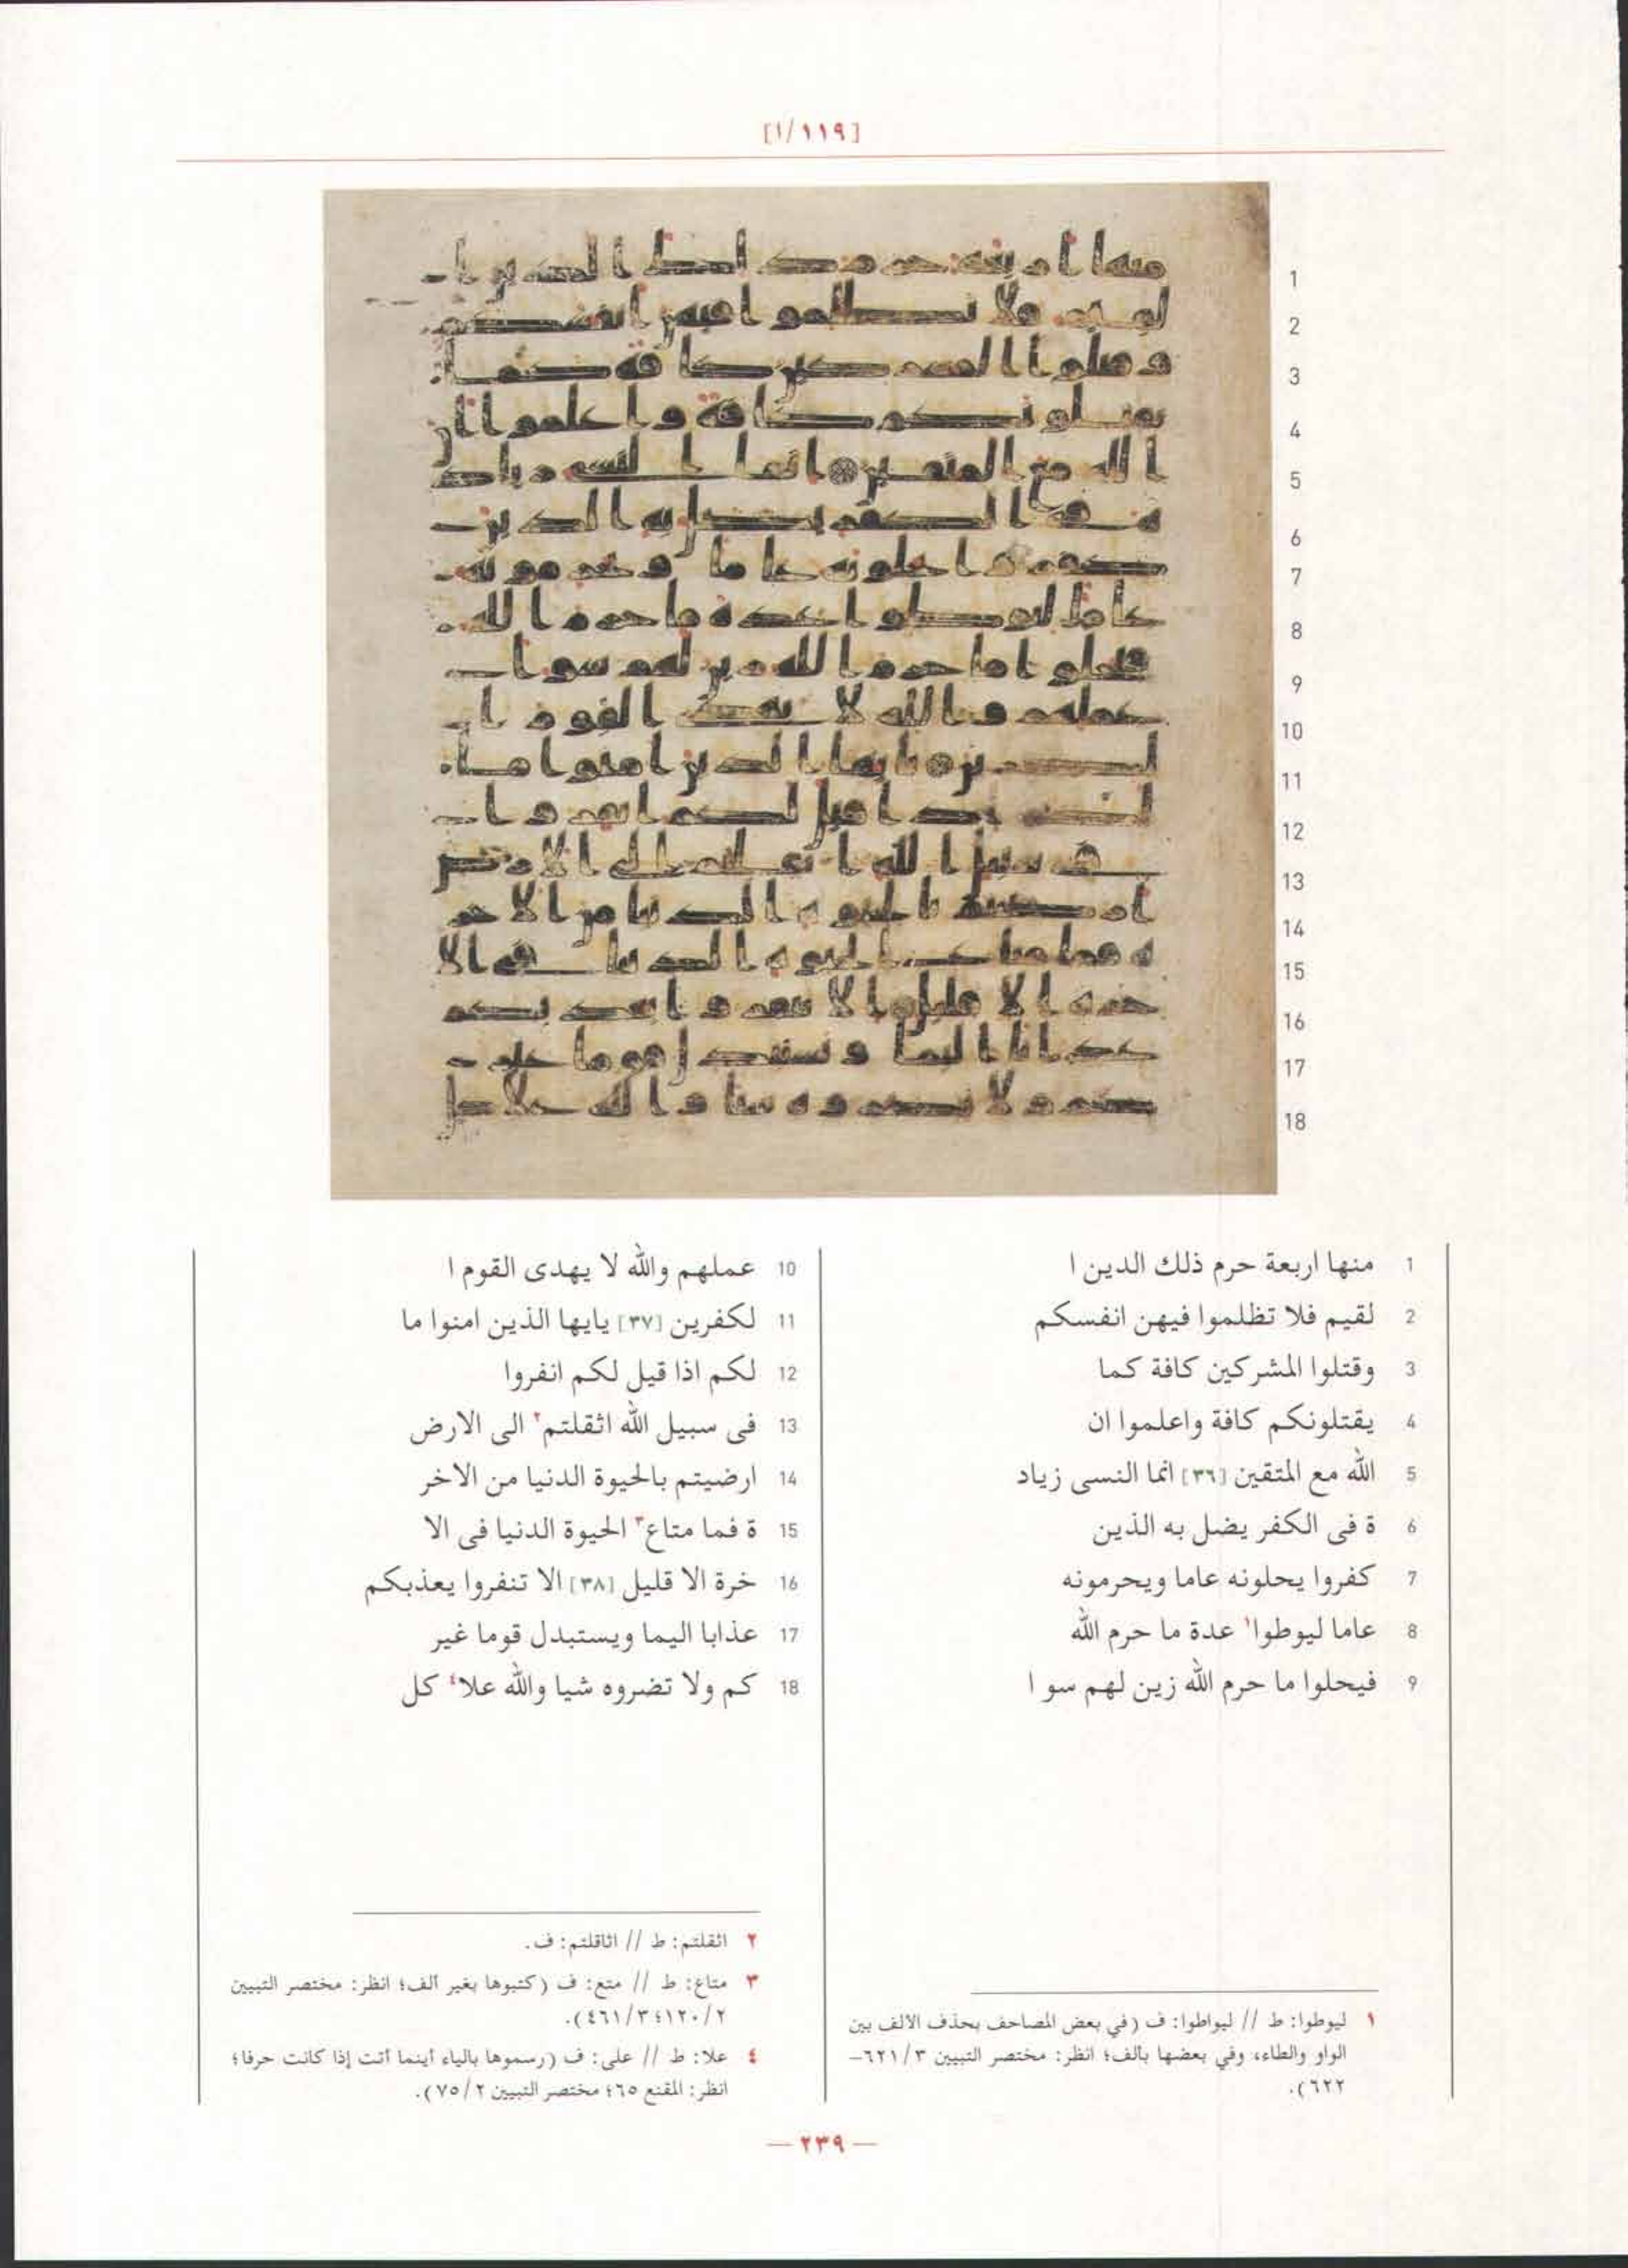 [١/١١٩]
1 منها اربعة حرم ذلك الدين ا
2 لقيم فلا تظلموا فيهن انفسكم
3 وقتلوا المشركين كافة كما
4 يقتلونكم كافة واعلموا ان
5 الله مع المتقين [٣٦] انما النسى زياد
6 ة فى الكفر يضل به الذين
7 كفروا يحلونه عاما ويحرمونه
8 عاما ليوطوا١ عدة ما حرم الله
9 فيحلوا ما حرم الله زين لهم سو ا
10 عملهم والله لا يهدى القوم ا
11 لكفرين [٣٧] يايها الذين امنوا ما
12 لكم اذا قيل لكم انفروا
13 فى سبيل الله اثقلتم٢ الى الارض
14 ارضيتم بالحيوة الدنيا من الاخر
15 ة فما متاع٣ الحيوة الدنيا فى الا
16 خرة الا قليل [٣٨] الا تنفروا يعذبكم
17 عذابا اليما ويستبدل قوما غير
18 كم ولا تضروه شيا والله علا٤ كل
١ ليوطوا: ط // ليواطوا: ف (في بعض المصاحف بحذف الألف بين
الواو والطاء، وفي بعضها بألف؛ انظر: مختصر التبيين ٦٢١/٣–
٦٢٢).
٢ اثقلتم: ط // اثاقلتم: ف.
٣ متاع: ط // متع: ف (كتبوها بغير ألف؛ انظر: مختصر التبيين
١٢٠/٢؛ ٤٦١/٣).
٤ علا: ط // على: ف (رسموها بالياء أينما أتت إذا كانت حرفا؛
انظر: المقنع ٦٥؛ مختصر التبيين ٧٥/٢).
— ٢٣٩ —